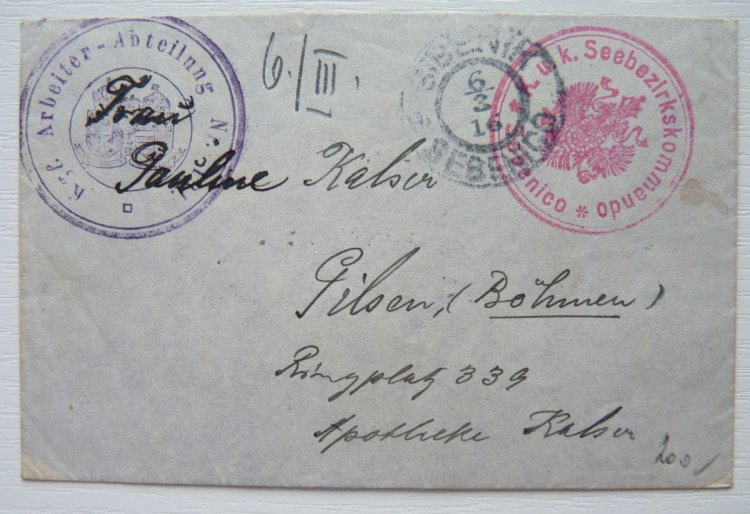 K.k. Arbeiter-Abteilung Nr.
6./III.
SEBENICO
6
3
16
SEBENICO
* k. u. k. Seebezirkskommando * Sebenico
Frau
Pauline Kalser
Pilsen, (Böhmen)
Ringplatz 339
Apotheke Kalser
200